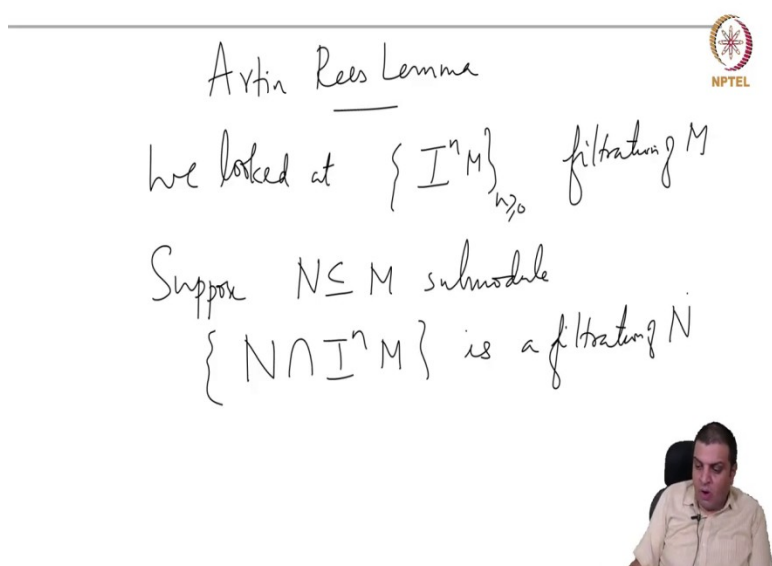 NPTEL
Artin Rees Lemma
We looked at { IⁿM }ₙ≥₀ filtration of M
Suppose N ⊆ M submodule
{ N ∩ IⁿM } is a filtration of N